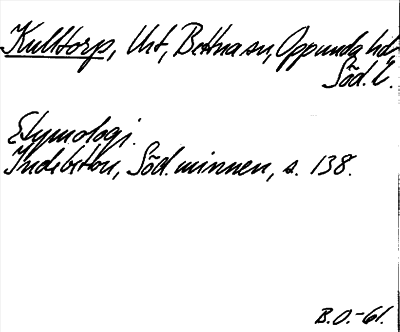 Kulltorp, Urt, Bettna sn, Oppunda hd
Söd. L.
Etymologi.
Indebetou, Söd. minnen, s. 138.
B.O.-61.